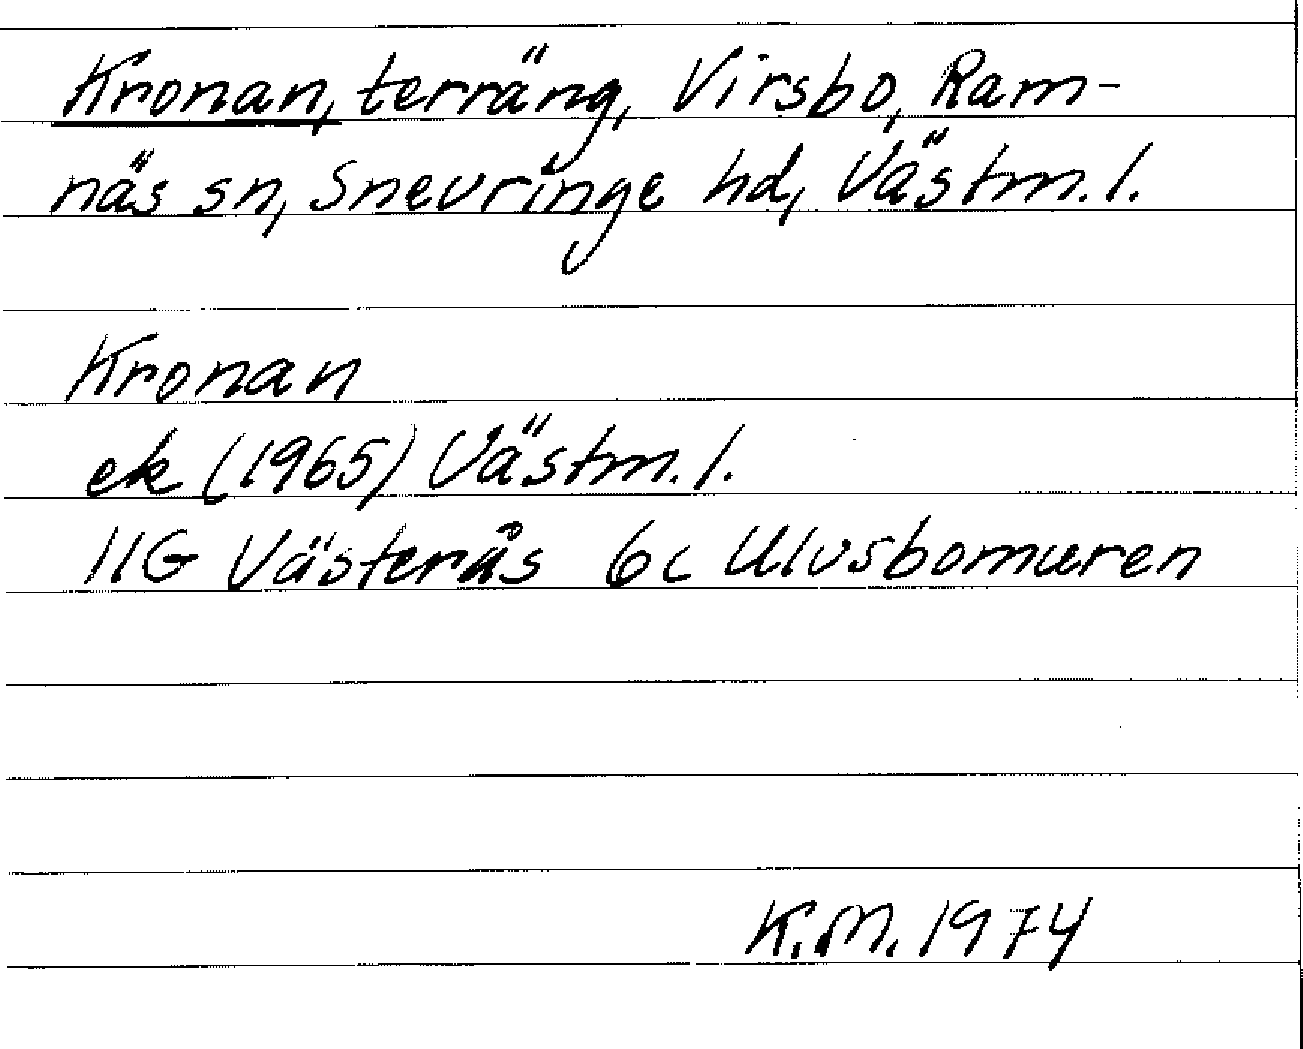 Kronan, terräng, Virsbo, Ram-
näs sn, Snevringe hd, Västm. l.
Kronan
ek (1965) Västm. l.
11G Västerås 6c Ulvsbomuren
K.M. 1974